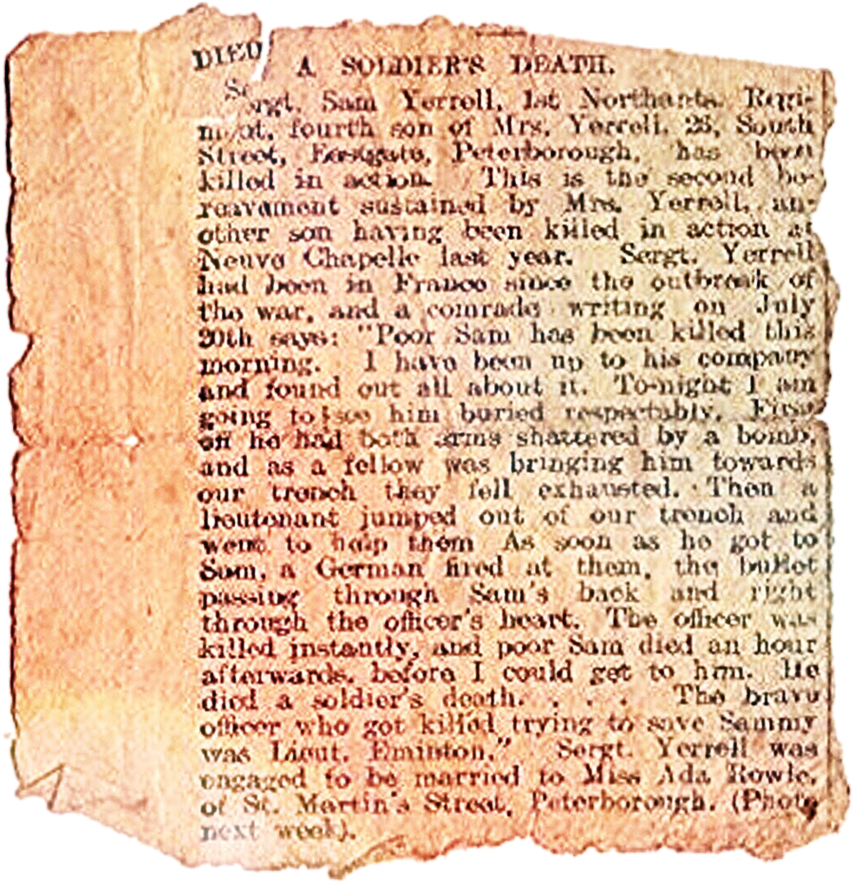 DIED
A SOLDIER'S DEATH.
Sergt. Sam Yerrell, 1st Northants. Regi-
ment, fourth son of Mrs. Yerrell, 26, South
Street, Eastgate, Peterborough, has been
killed in action. This is the second be-
reavement sustained by Mrs. Yerrell, an-
other son having been killed in action at
Neuve Chapelle last year. Sergt. Yerrell
had been in France since the outbreak of
the war, and a comrade writing on July
20th says: "Poor Sam has been killed this
morning. I have been up to his company
and found out all about it. To-night I am
going to see him buried respectably. First
off he had both arms shattered by a bomb,
and as a fellow was bringing him towards
our trench they fell exhausted. Then a
lieutenant jumped out of our trench and
went to help them As soon as he got to
Sam, a German fired at them, the bullet
passing through Sam's back and right
through the officer's heart. The officer was
killed instantly, and poor Sam died an hour
afterwards, before I could get to him. He
died a soldier's death. . . . The brave
officer who got killed trying to save Sammy
was Lieut. Eminton." Sergt. Yerrell was
engaged to be married to Miss Ada Rowle,
of St. Martin's Street, Peterborough. (Photo
next week).